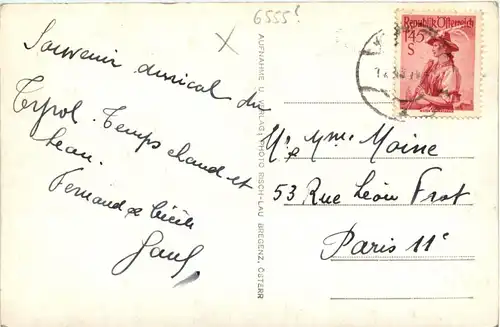 6555?
Souvenir amical du
Tyrol. Temps chaud et
beau.
Fernand & Cécile
AUFNAHME U. VERLAG: PHOTO RISCH-LAU BREGENZ, ÖSTERR
Republik Österreich
1.45
S
M. & Mme Moine
53 Rue Léon Frot
Paris 11e